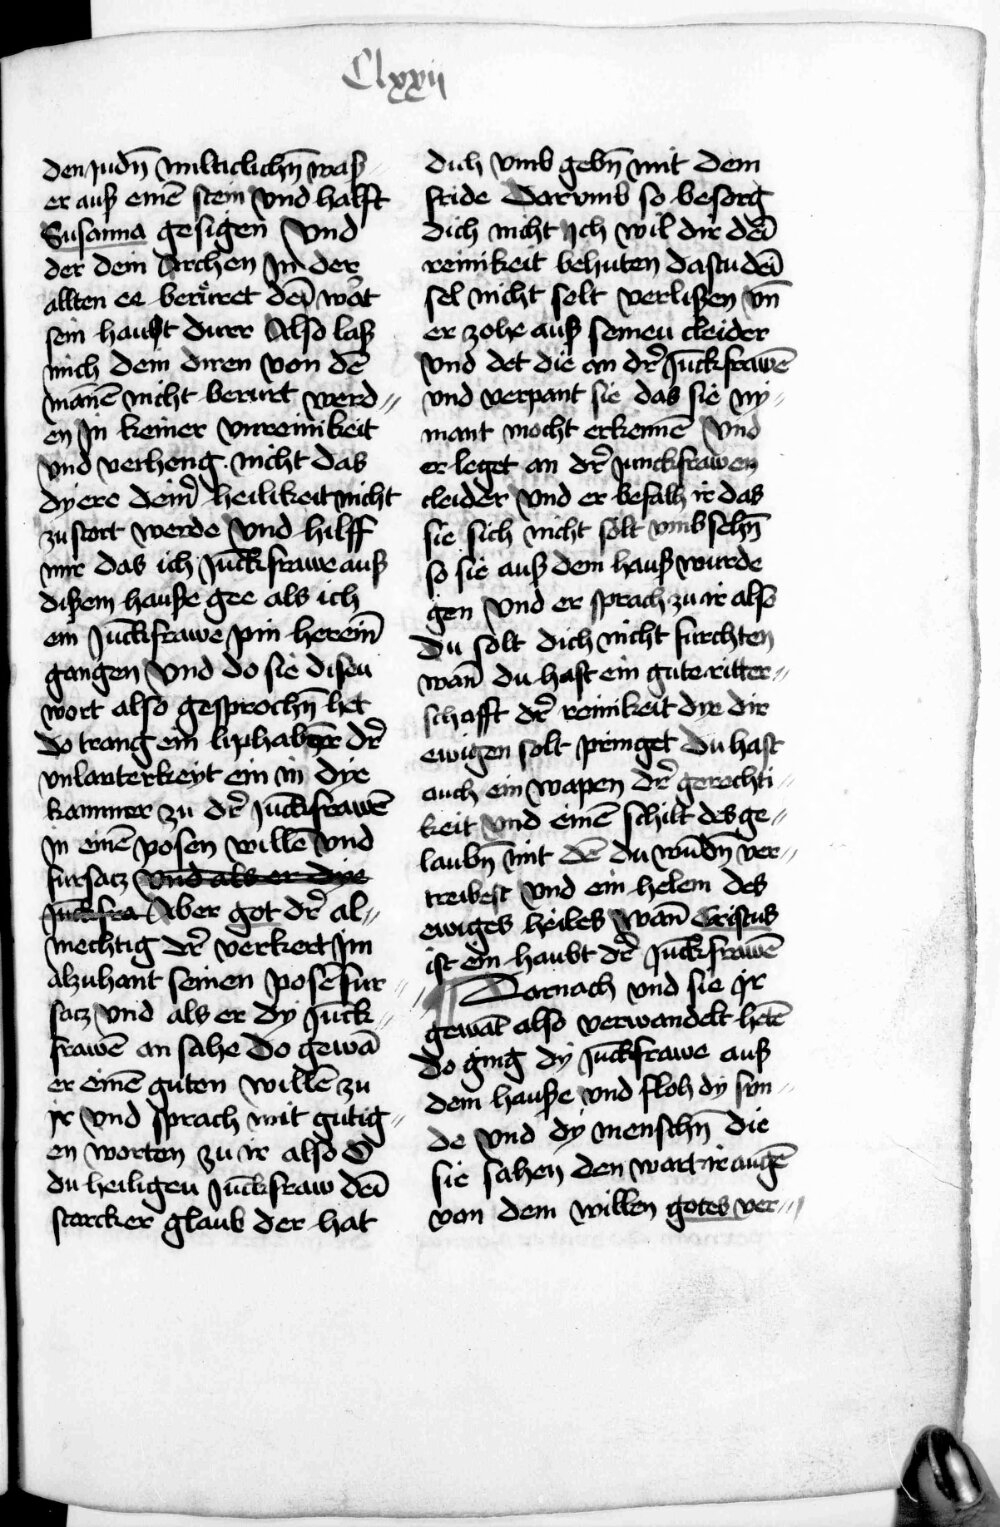 Clxxij
den judn̄ milticlichn̄ waſſ
er auß einē stein Vnd halfft
Susanna gesigen Vnd
der dein Archen In der
allten ee berüret dēi wōt
sein haubt durr Also laß
mich dein diren von dē
mānē nicht berurt werd〃
en Jn keiner vnreinikeit
vnd verheng nicht das
dyere deinˀ heilikeit nicht
zu stort werde Vnd hilff
mir das ich Jūckfrawe auß
dißem hauße gee als ich
ein Jūckfrawe pin herein
gangen Vnd do sie diseu
wort also gesprochn̄ het
do trang ein liphaber drˀ
vnlauterkeyt ein in dye
kammer zu drˀ Jūckfrawē
Jn einē posen willē vnd
fursacz vnd als er dye
Jūckfra Aber got drˀ al〃
mechtig drˀ verkert Jm
alzuhant seinen posē fur〃
sacz vnd als er dy Jūck〃
frawē an sahe do gewā
er einē guten willē zu
jr vnd sprach mit gutig〃
en worten zu ir also O
du heiligeu Jūckfraw dēi
starcker glaub der hat
dich vmb gebn̄ mit dem
fride Dorvmb so besorg
dich nicht Jch wil dir dēi
reinikeit behuten dastu dēi
sel nicht solt verlißen vn̄
er zohe auß seineu cleider
vnd det die an drˀ Jūckfrawē
vnd verpant sie das sie ny〃
mant mocht erkennē Vnd
er leget an drˀ junckfrawen
cleider Vnd er befalh ir das
sie sich nicht solt vmb sehn̄
so sie auß dem hauß wurde
gen Vnd er sprach zu ir also
du solt dich nicht furchten
wān du hast ein gute ritter〃
schafft drˀ reinikeit dye dir
ewigen solt pringet du hast
auch ein wapen drˀ gerechti〃
keit vnd einē schilt des ge〃
laubn̄ mit dē du wūdn̄ ver〃
treibest Vnd ein helem des
ewiges heiles wān Cristus
ist ein haubt drˀ Jūckfrawē
Dornach vnd sie Jr
gewāt also verwandelt hetē
do ging dy Jūckfrawe auß
dem hauße vnd floh dy sun〃
de Vnd dy menschn̄ die
sie sahen den wart ir augē
von dem willen gotes ver〃